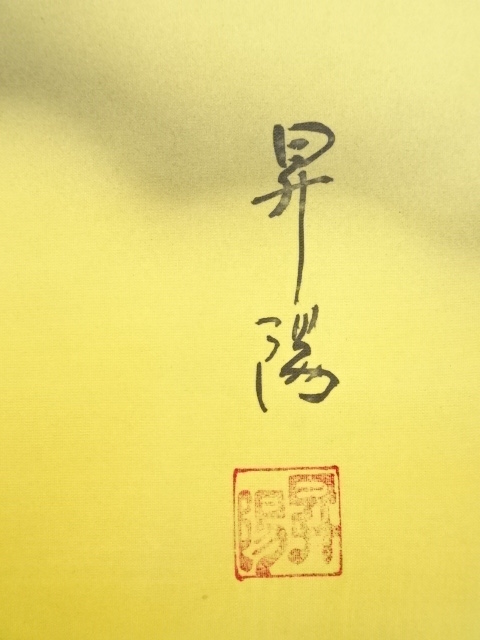 昇陽
昇陽